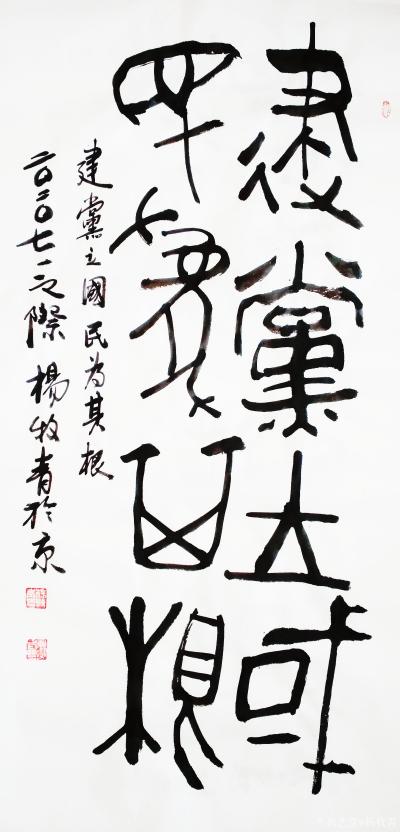 建黨立國
民為其根
建黨立國民為其根
二〇二〇七一之際楊牧青於京